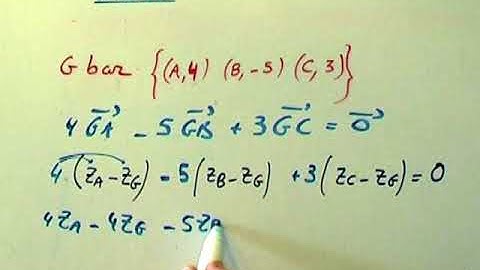 G bar {(A,4) (B,-5) (C,3)}
4 GA⃗ - 5 GB⃗ + 3 GC⃗ = 0⃗
4 (zA - zG) - 5 (zB - zG) + 3 (zC - zG) = 0
4zA - 4zG - 5zB